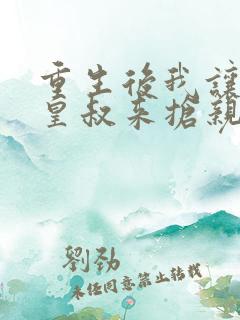 重生後我讓
皇叔来搶親
劉勁
未经同意禁止转载